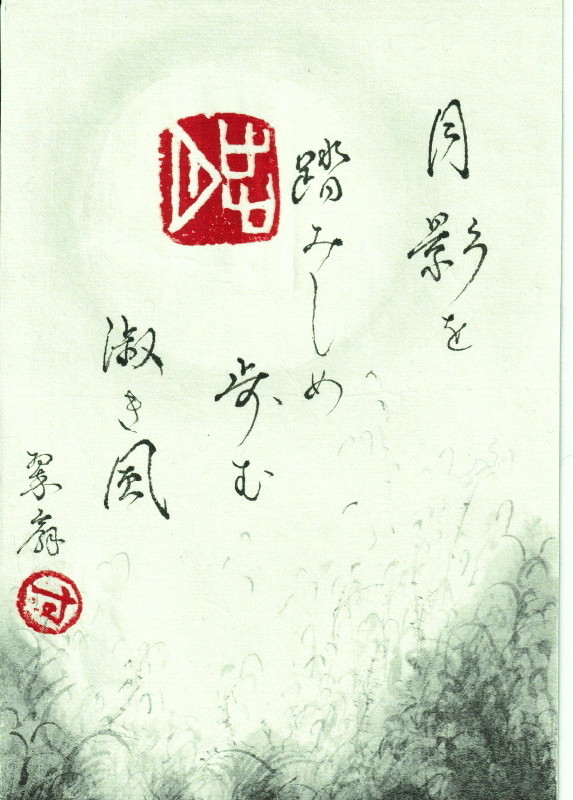 月影を
踏みしめ
歩む
淑き風